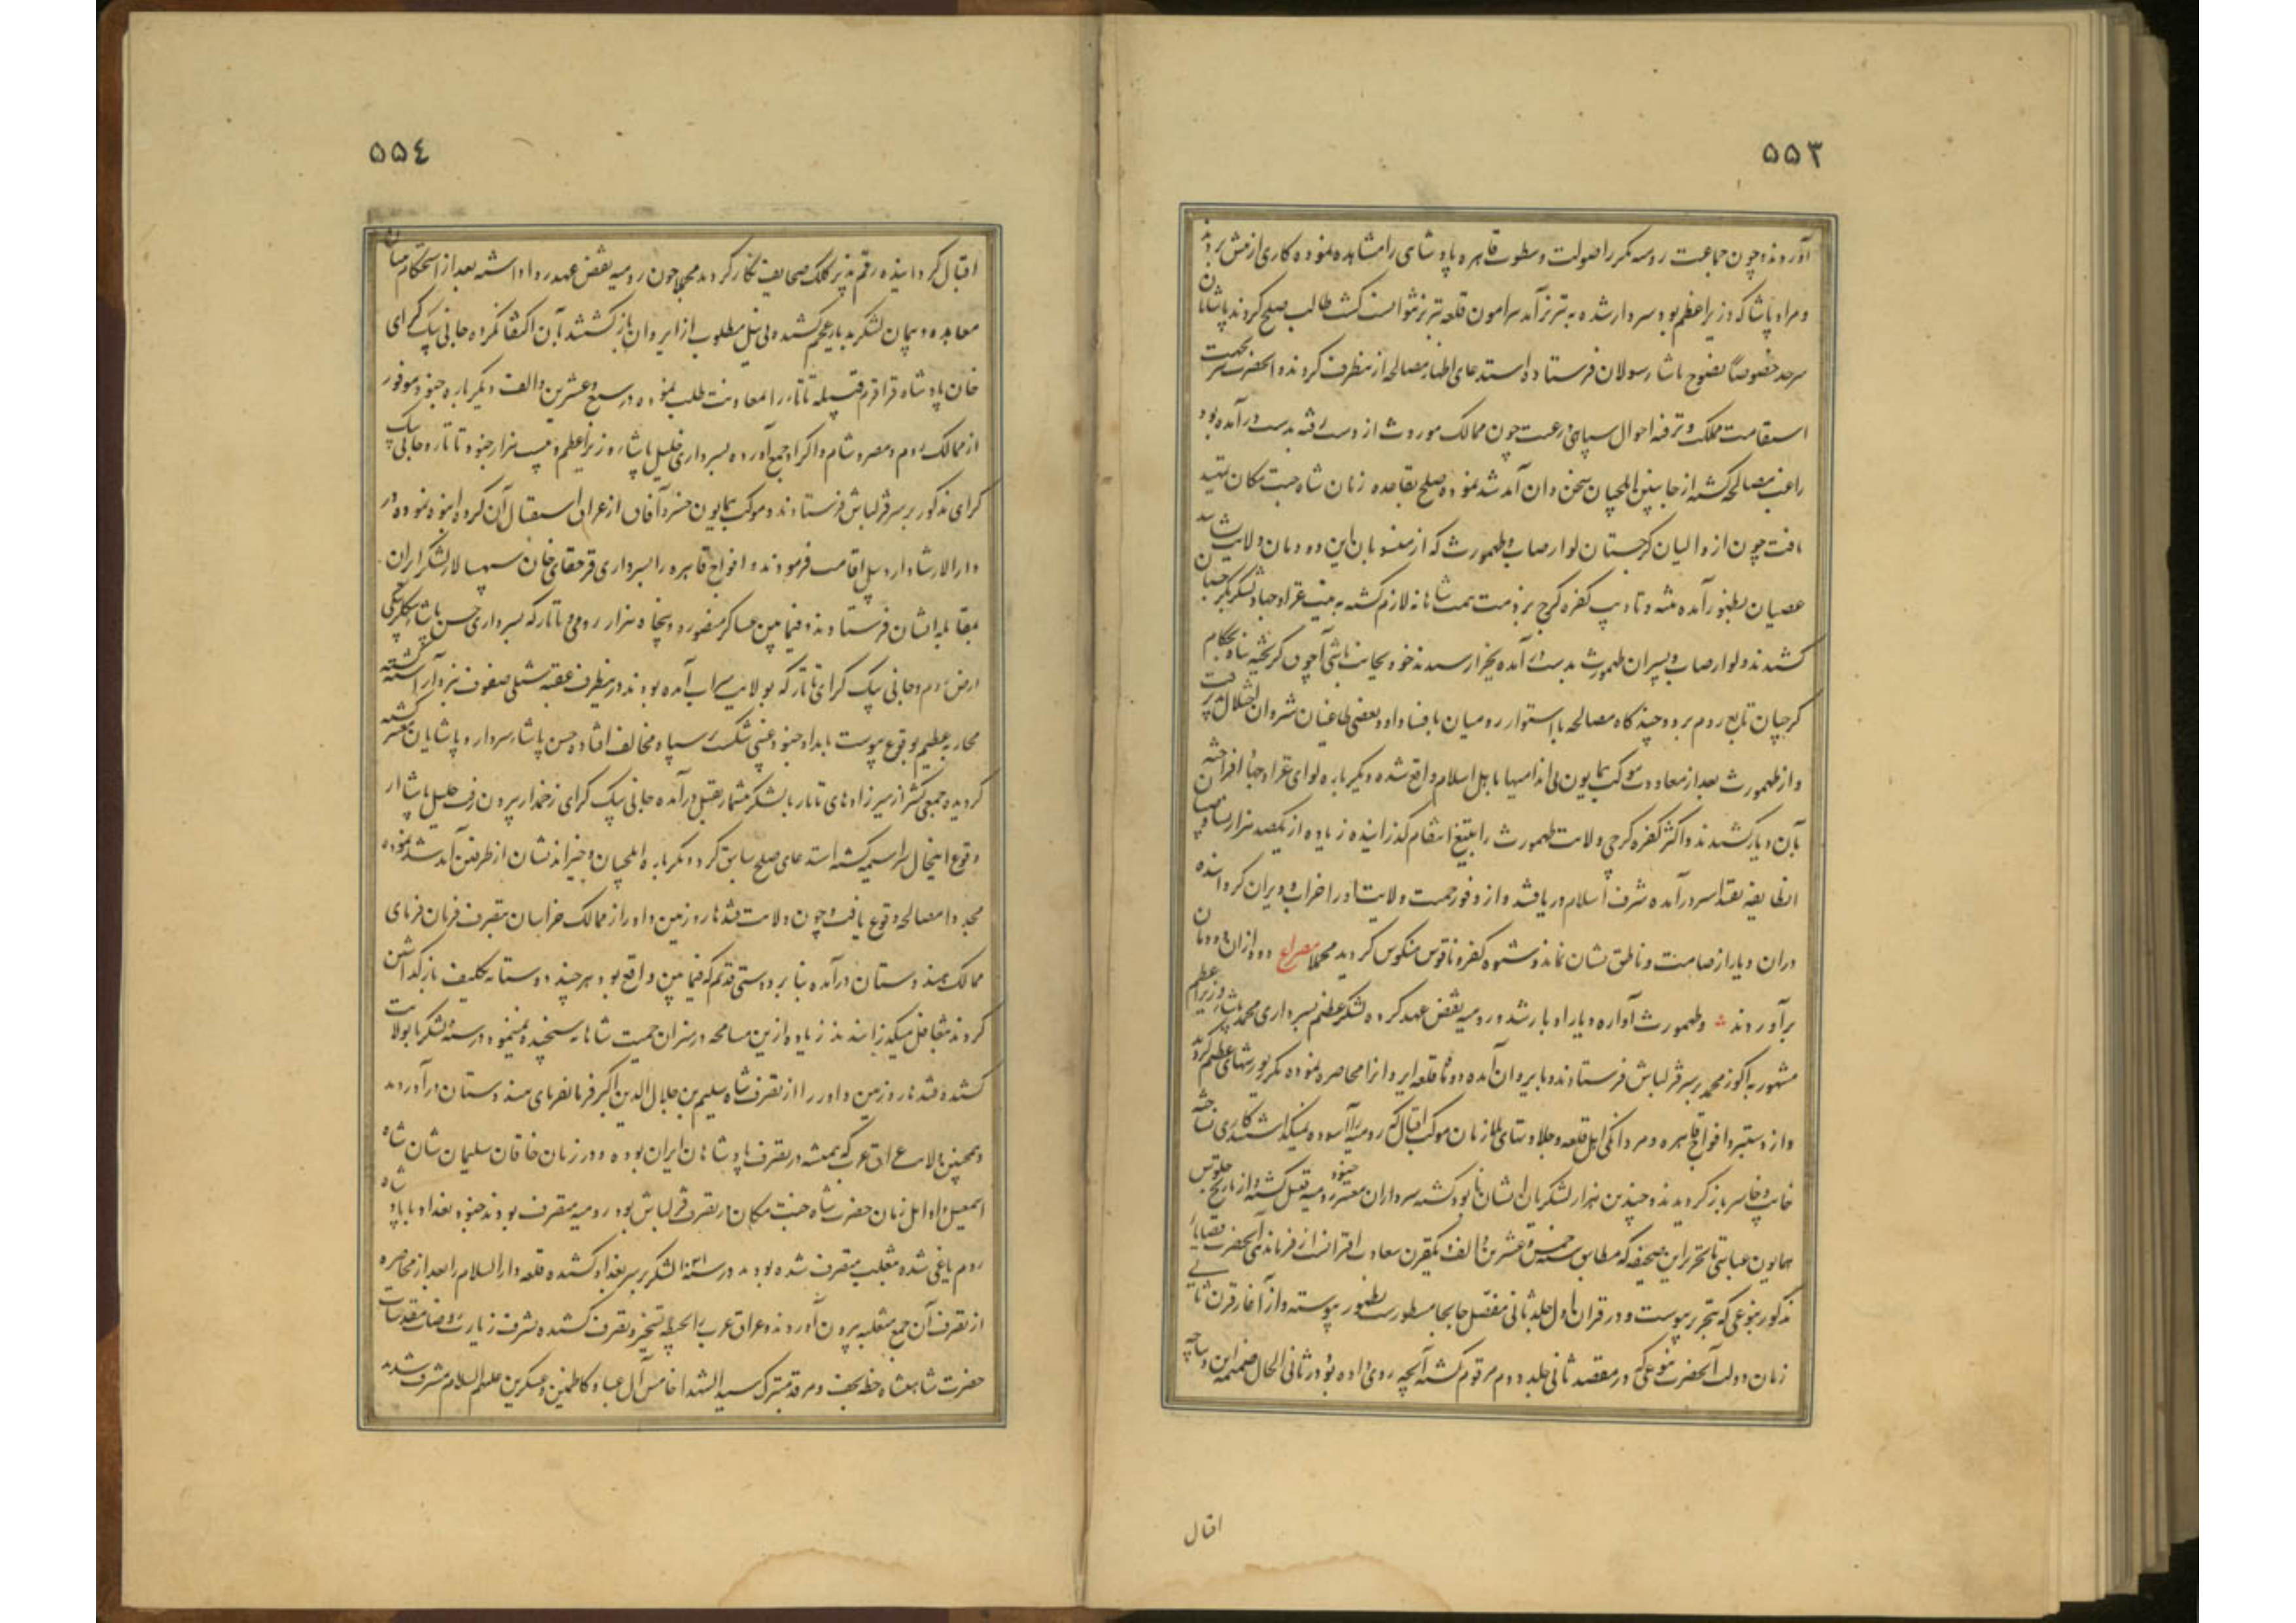 ۵۵۳
آوردند و چون جماعت رومیه مکرر اصولت و سطوت قاهره پادشاهی را مشاهده نموده کاری از پیش نبردند
و مراد پاشا که وزیر اعظم بود سردار شده به تبریز آمد پیرامون قلعه تبریز نتوانست گشت طالب صلح گردیدند پاشایان
سرحد خصوصاً نصوح پاشا رسولان فرستاده استدعای اظهار مصالحه از ینطرف کردند و آنحضرت بجهت
استقامت مملکت و ترفیه احوال سپاهی و رعیت چون ممالک موروث از دست رفته بدست درآمده بود
راغب مصالحه گشته از جانبین ایلچیان سخن دان آمد شد نموده صلح بقاعده زمان شاه جنت مکان تمهید
یافت چون از والیان گرجستان لوارصاب و طهمورث که از منسوبان این دودمان ولایت نشانند
عصیان بظهور آمده تنبیه و تادیب کفره گرج بر ذمت همت شاهانه لازم گشته به نیت غزا و جهاد لشکر بگرجستان
کشیدند و لوارصاب و پسران طهمورث بدست آمده بجزا رسیدند خود بجانب باشی آچوق گریخته پناه بحکام
گرجیان تابع روم برد و چندگاه مصالحه نا استوار رومیان بافساد او و بعضی طاغیان شروان اختلال پذیرفت
و از طهمورث بعد از معاودت موکب همایون بی اندامیها باهل اسلام واقع شده دیگر باره لوای غزا و جهاد افراخته
بآن دیار کشیدند و اکثر کفره گرجی ولایت طهمورث را بتیغ انتقام گذرانیده زیاده از یکصد هزار نسا و صبیان
آنطایفه بقید اسر درآمده شرف اسلام دریافتند و از وفور حمیت ولایت او را خراب و ویران گردانیده
دران دیار از صامت و ناطق نشان نماند و شیوه کفره ناقوس منکوس گردید مجملا مصراع دود ازان دودمان
برآوردند و طهمورث آواره دیار ادبار شد و رومیه نقض عهد کرده لشکر عظیم بسرداری محمد پاشا وزیر اعظم
مشهور به اکوز محمد بر سر قزلباش فرستادند و بایروان آمده دو ماه قلعه ایروانرا محاصره نموده مکرر یورشهای عظیم کردند
و از دستبرد افواج قاهره و مردانگی اهل قلعه و جلادتهای ملازمان موکب اقبال که رومیه را آسوده نمیگذاشتند کاری نساخته
خایب و خاسر باز گردیدند و چندین هزار لشکریان ایشان نابود گشته سرداران معتبر جنود رومیه قتیل گشته و از تاریخ جلوس
همایون عباسی تا تحریر این صحیفه که مطابق سنه خمس و عشرین و الف یکقرن سعادت اقترانست از فرماندهی آنحضرت قضایای
مذکور بنوعی که بتحریر پیوست و در قران اول جلد ثانی مفصل جابجا مسطورست بظهور پیوسته و از آغاز قرن ثانی
زمان دولت آنحضرت بنوعی که در مقصد ثانی جلد دوم مرقوم گشته آنچه روی داده بود در ثانی الحال ضمیمه این دیباچه
اقبال
۵۵٤
اقبال گردانیده رقم پذیر کلک صحایف نگار گردید مجملا چون رومیه نقض عهد روا داشته بعد از استحکام میثاق
معاهده و پیمان لشکر بدیار عجم کشیده بی نیل مطلوب از ایروان باز گشتند بآن اکتفا نکرده جانی بیک گرای
خان پادشاه قراقرم قبیله تاتار را معاونت طلب نموده در سبع و عشرین و الف دیگر باره جنود موفور
از ممالک روم و مصر و شام و اکراد جمع آورده بسرداری خلیل پاشاء وزیر اعظم و بیست هزار جنود تاتار و جانی بیک
گرای مذکور بر سر قزلباش فرستادند و موکب همایون خسرو آفاق از عراق استقبال آن گروه انبوه نموده در
دارالارشاد اردبیل اقامت فرمودند و افواج قاهره را بسرداری قرچقای خان سپهسالار لشکر ایران
بمقابله ایشان فرستادند و فیمابین عساکر منصوره و پنجاه هزار رومی و تاتار که بسرداری حسن پاشا بیگلربیگی
ارض روم و جانی بیک گرای تاتار که بولایت سراب آمده بودند در ینطرف عقبه شبلی صفوف نبرد آراسته گشته
محاربه عظیم بوقوع پیوست بامداد جنود غیبی شکست بر سپاه مخالف افتاده حسن پاشاء سردار و پاشایان معتبر کشته
گردیده جمعی کثیر از میرزادهای تاتار با لشکر بیشمار بقتل درآمده جانی بیک گرای زخمدار بیرون رفت خلیل پاشا از
وقوع اینحال سراسیمه گشته استدعای صلح سابق کرد و دیگر باره ایلچیان و خیراندیشان از طرفین آمد شد نموده
مجددا مصالحه وقوع یافت و چون ولایت قندهار و زمین داور از ممالک خراسان بتصرف فرمان فرمای
ممالک هندوستان درآمده بنا بر دوستی قدیم که فیمابین واقع بود هر چند دوستانه تکلیف باز گذاشتن
کردند بتغافل میگذرانیدند زیاده ازین مسامحه در میزان حمیت شاهانه سنجیده نمینمود در سنه لشکر بآنولایت
کشیده قندهار و زمین داور را از تصرف شاه سلیم بن جلال الدین اکبر فرمانفرمای هندوستان درآوردند
و همچنین ولایت عراق عرب که همیشه در تصرف پادشاهان ایران بوده و در زمان خاقان سلیمان شان شاه
اسمعیل و اوایل زمان حضرت شاه جنت مکان در تصرف قزلباش بود رومیه متصرف بودند جنود بغداد با پادشاه
روم یاغی شده بتغلب متصرف شده بودند در سنه ۱۰۳۱ لشکر بر سر بغداد کشیده قلعه دارالسلام را بعد از محاصره
از تصرف آن جمع متغلبه بیرون آوردند و عراق عرب را بحیطه تسخیر و تصرف کشیده شرف زیارت روضات مقدسات
حضرت شاهنشاه خطه نجف و مرقد متبرک سید الشهدا خامس آل عبا و کاظمین و عسکریین علیهم السلام مشرف شدند